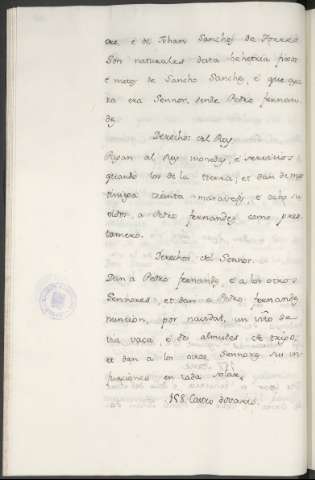 é de Johan Sanchez de
Son naturales desta behetria fijos
é nietos de Sancho Sanchez, é que
ra era Sennor, ende Pedro fernan
dz.
Derechos del Rey
Pagan al Rey monedas, é servicios
quando los de la tierra; et dan de mar
tiniega treinta maravedis, é ocho su
eldos, a Pedro fernandez como pres
tamero.
Derechos del Sennor.
Dan a Pedro fernandz, é a los otros
Sennores, et dan a Pedro fernandz
nuncion, por navidat, un
vaca, é dos almudes de trigo,
et dan a los otros Sennores su in
furcion en cada solar.
158. Castro